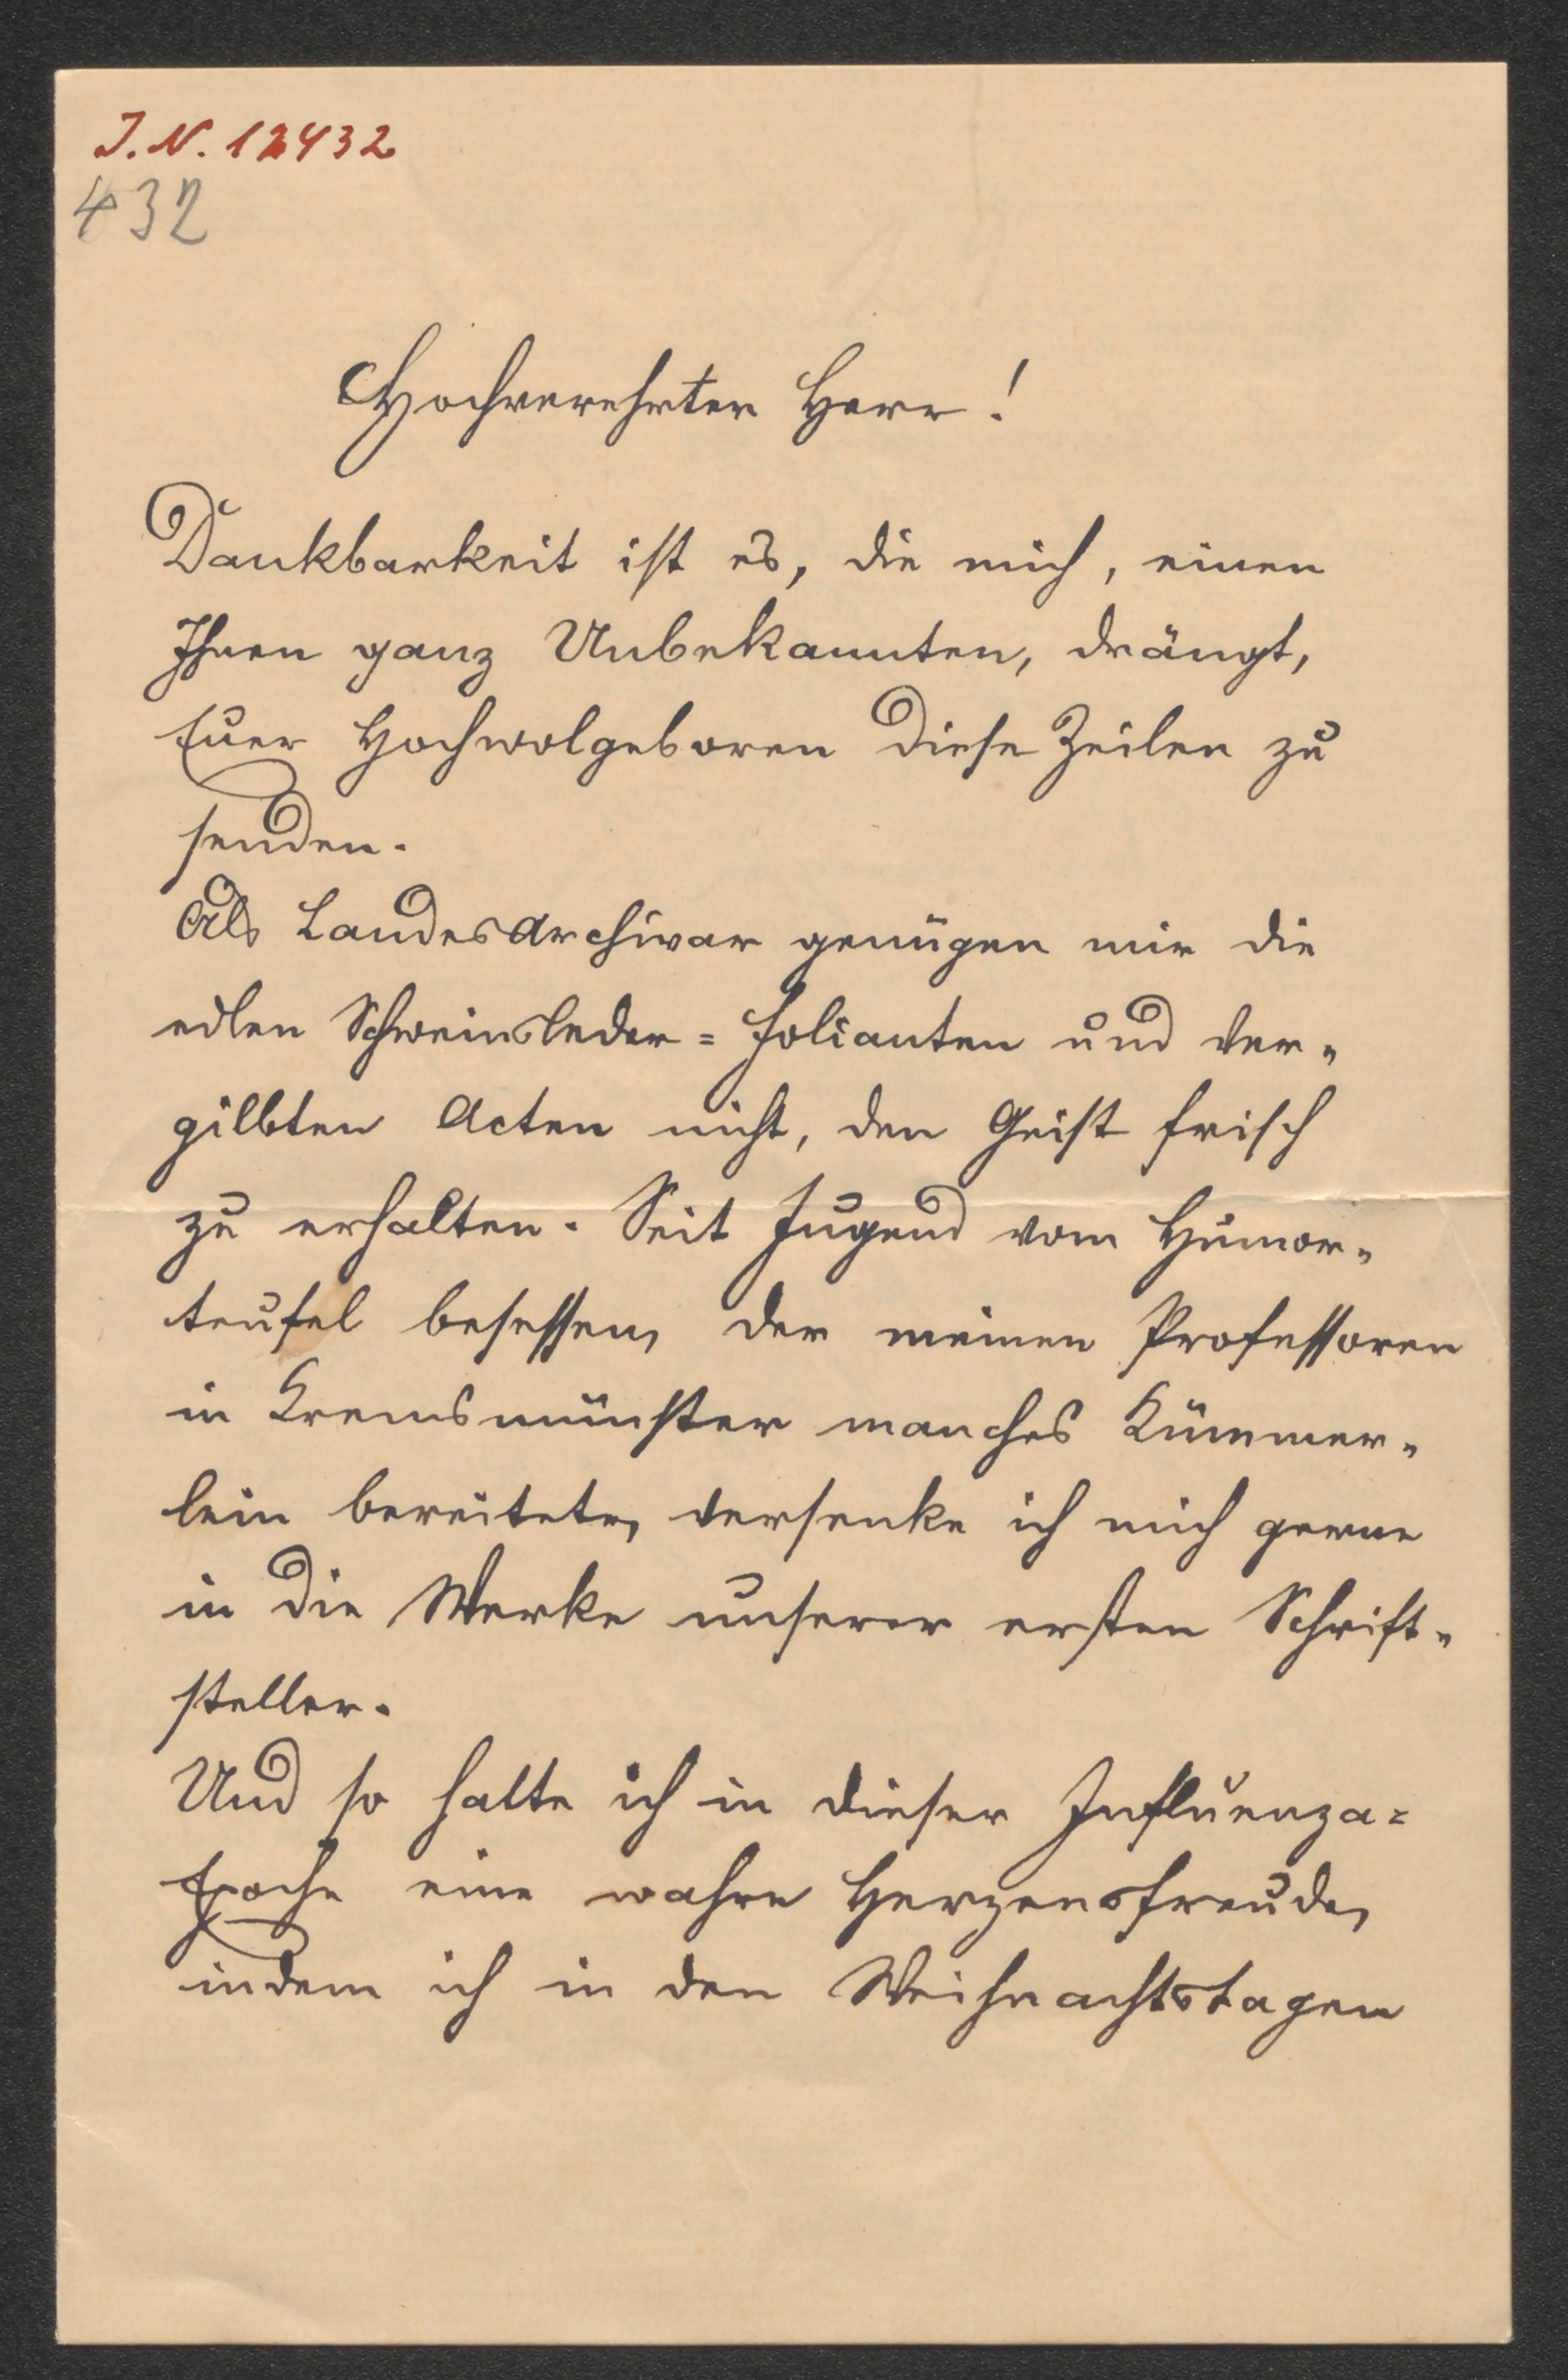 J.N. 12432
432
Hochverehrter Herr!
Dankbarkeit ist es, die mich, einen
Ihnen ganz Unbekannten, drängt,
Euer Hochwolgeboren diese Zeilen zu
senden.
Als Landesarchivar genügen mir die
edlen Schweinsleder=Folianten und ver=
gilbten Acten nicht, den Geist frisch
zu erhalten. Seit Jugend vom Humor=
teufel besessen, der meinen Professoren
in Kremsmünster manches Kümmer=
lein bereitete, versenke ich mich gerne
in die Werke unserer ersten Schrift=
steller.
Und so hatte ich in dieser Influenza=
Epoche eine wahre Herzensfreude,
indem ich in den Weihnachtstagen